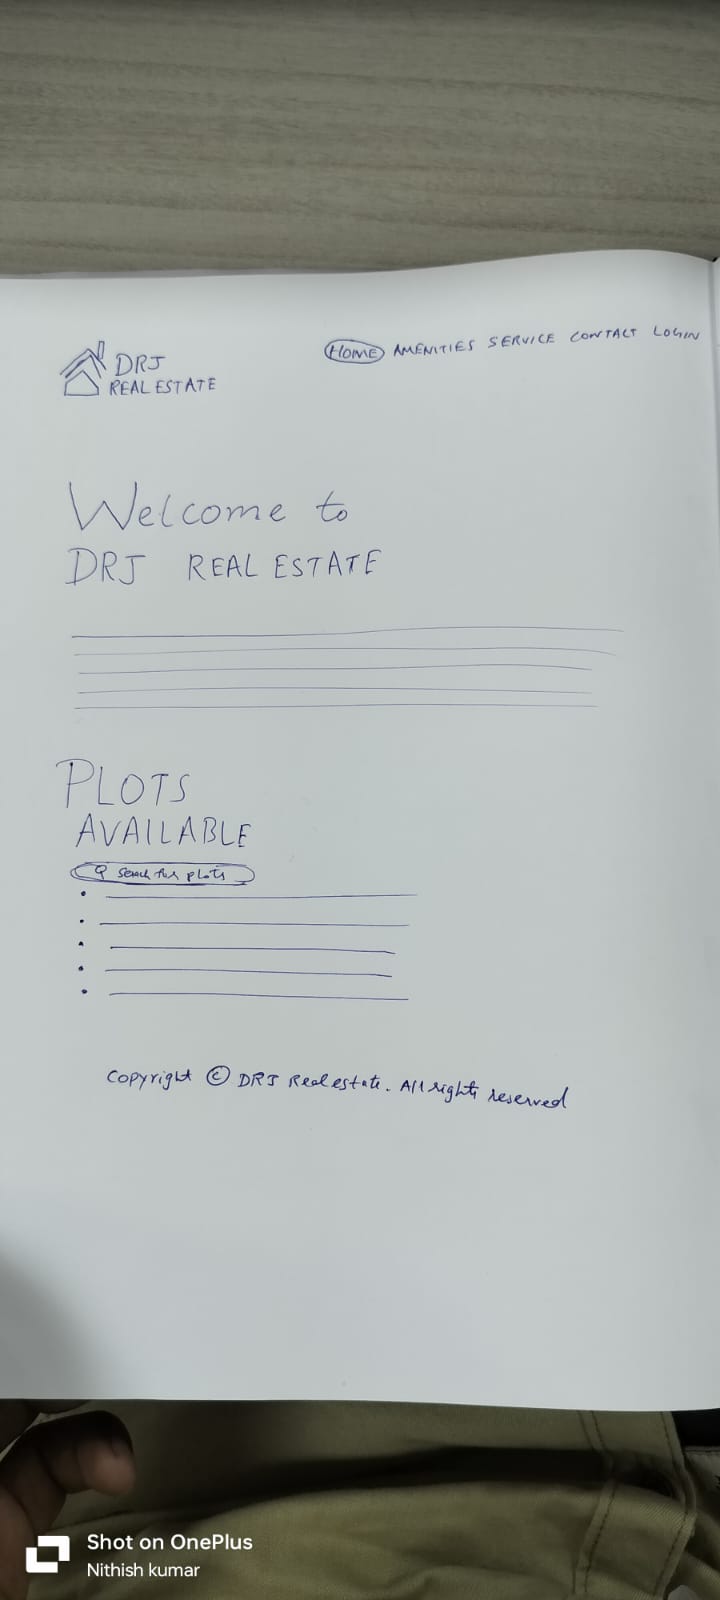 DRJ
REAL ESTATE
HOME AMENITIES SERVICE CONTACT LOGIN
Welcome to
DRJ REAL ESTATE
PLOTS
AVAILABLE
Search for plots
Copyright © DRJ Real estate. All rights reserved
Shot on OnePlus
Nithish kumar